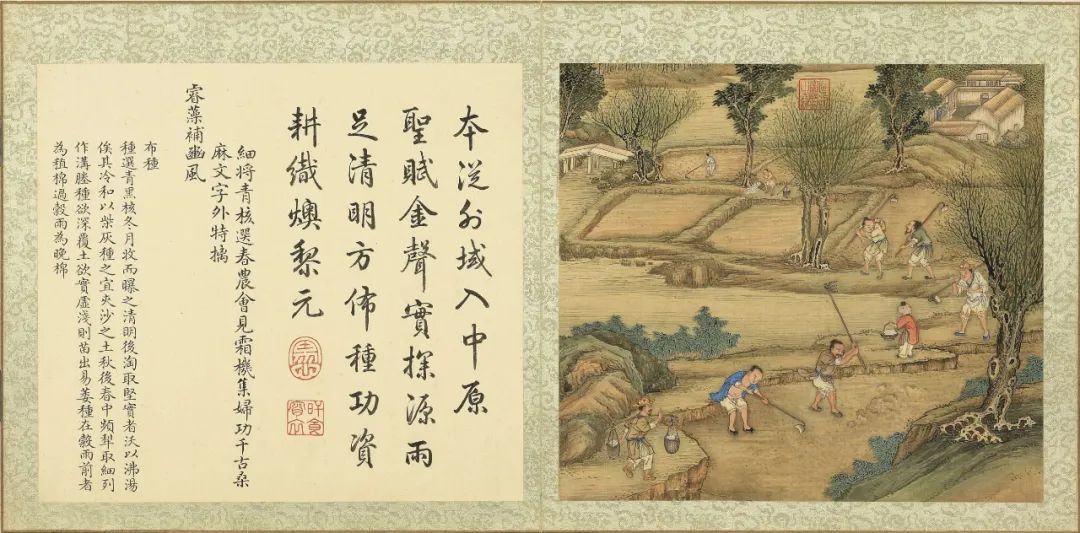 本從外域入中原
聖賦金聲實探源雨
足清明方佈種功資
耕織燠黎元
細將青核選春農會見霜機集婦功千古桑
麻文字外特摛
睿藻補豳風
布種
種選青黑核冬月收而曝之清明後淘取堅實者沃以沸湯
俟其冷和以柴灰種之宜夾沙之土秋後春中頻犂取細列
作溝塍種欲深覆土欲實虛淺則苗出易萎種在穀雨前者
為稙棉過穀雨為晚棉